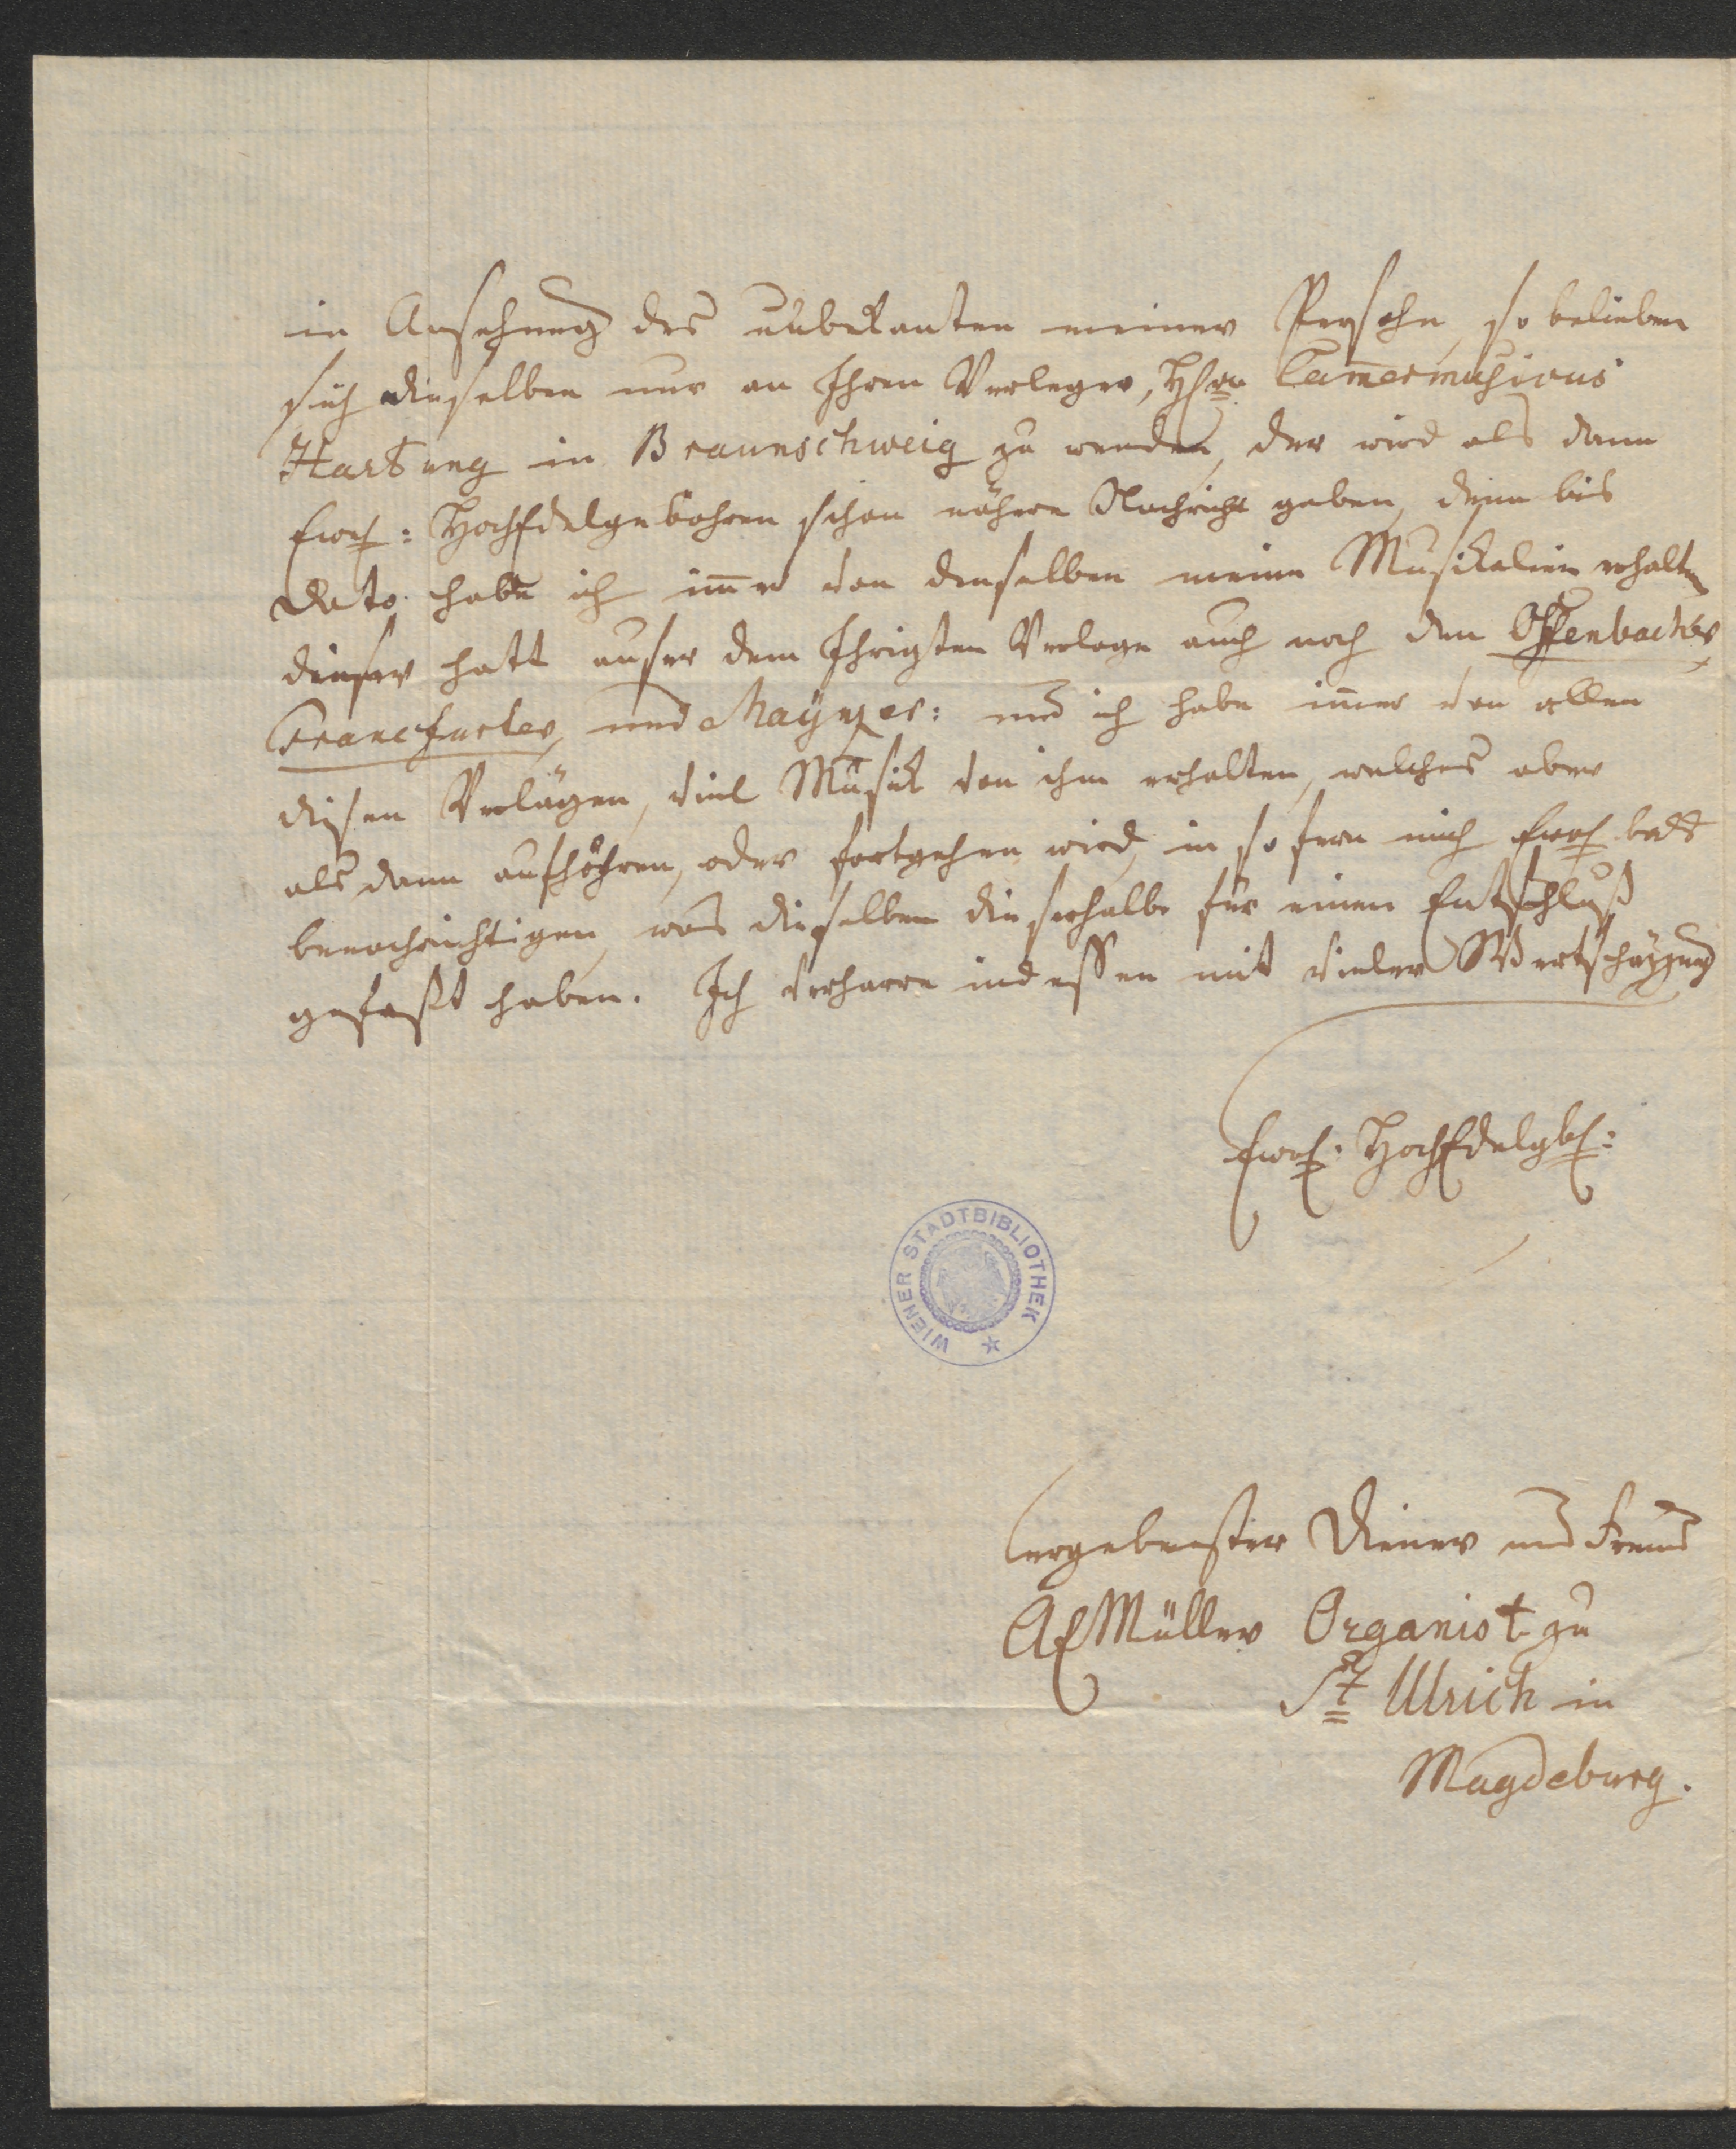 in Ansehung des unbekanten meiner Persohn, so belieben
sich dieselben nur an Ihren Verleger, Hrn Cam̅ermusicus
Hartung in Braunschweig zu wenden, der wird als dann
Ewr: HochEdelgebohren schon nähere Nachricht geben, denn bis
Dato habe ich im̅er von denselben meine Musikalien erhalten
dieser hatt auser dem Ihrigsten Verlage auch noch den Offenbacher,
Francfurter, und Maynzer: und ich habe im̅er von allen
disen Verlägen, viel Musik von ihm erhalten, welches aber
als dann aufhöhren, oder fortgehen wird, in so fern mich Ewr
benachrichtigen, was dieselben dieserhalbe für einen Entschluß
gefaßt haben. Ich verharre indessen mit vieler Wertschäzung
Ewr: HochEdelgb:
WIENER STADTBIBLIOTHEK
ergebenster Diener und Freund
Müller Organist zu
St Ulrich in
Magdeburg.